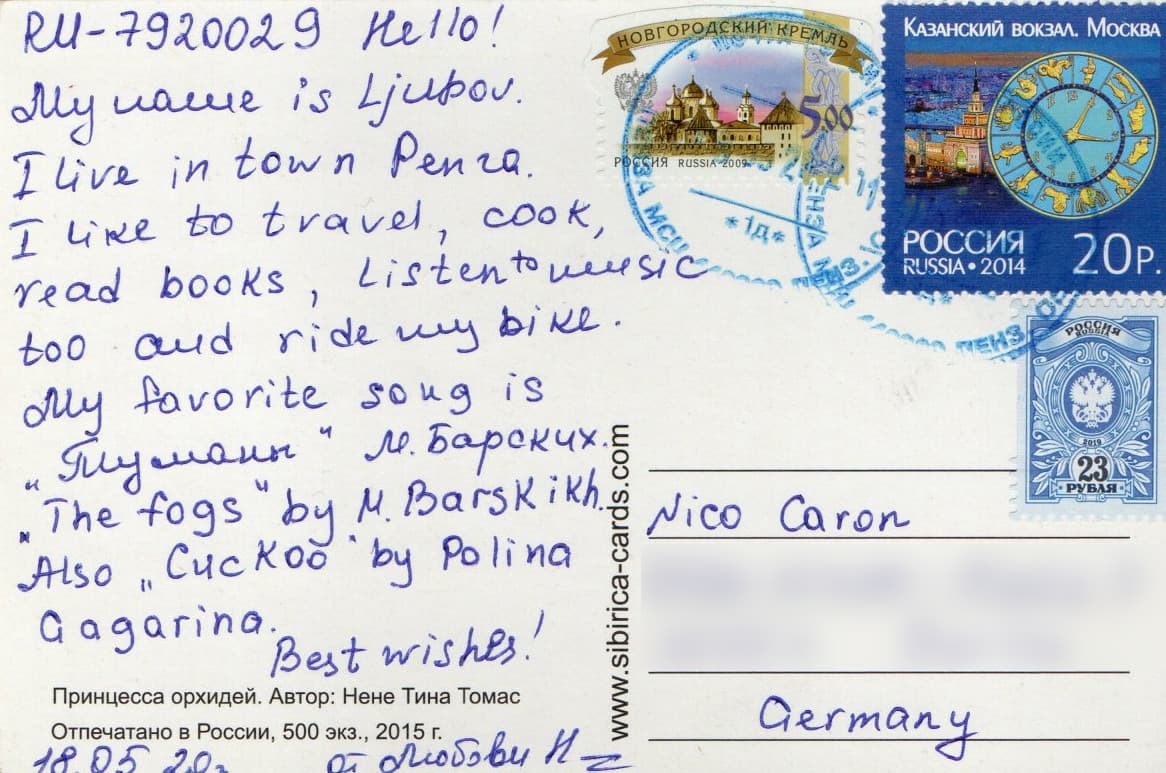 RU-7920029 Hello!
My name is Ljubov.
I live in town Penza.
I like to travel, cook,
read books, listen to music
too and ride my bike.
My favorite song is
„Туманы" М. Барских.
„The fogs" by M. Barskikh.
Also „Cuckoo" by Polina
Gagarina.
Best wishes!
Принцесса орхидей. Автор: Нене Тина Томас
Отпечатано в России, 500 экз., 2015 г.
18.05
от Любови Н
www.sibirica-cards.com
НОВГОРОДСКИЙ КРЕМЛЬ
5.00
РОССИЯ RUSSIA 2009
*1д*
КАЗАНСКИЙ ВОКЗАЛ. МОСКВА
РОССИЯ
RUSSIA • 2014
20Р.
РОССИЯ
RUSSIA
2019
23
РУБЛЯ
Nico Caron
Germany